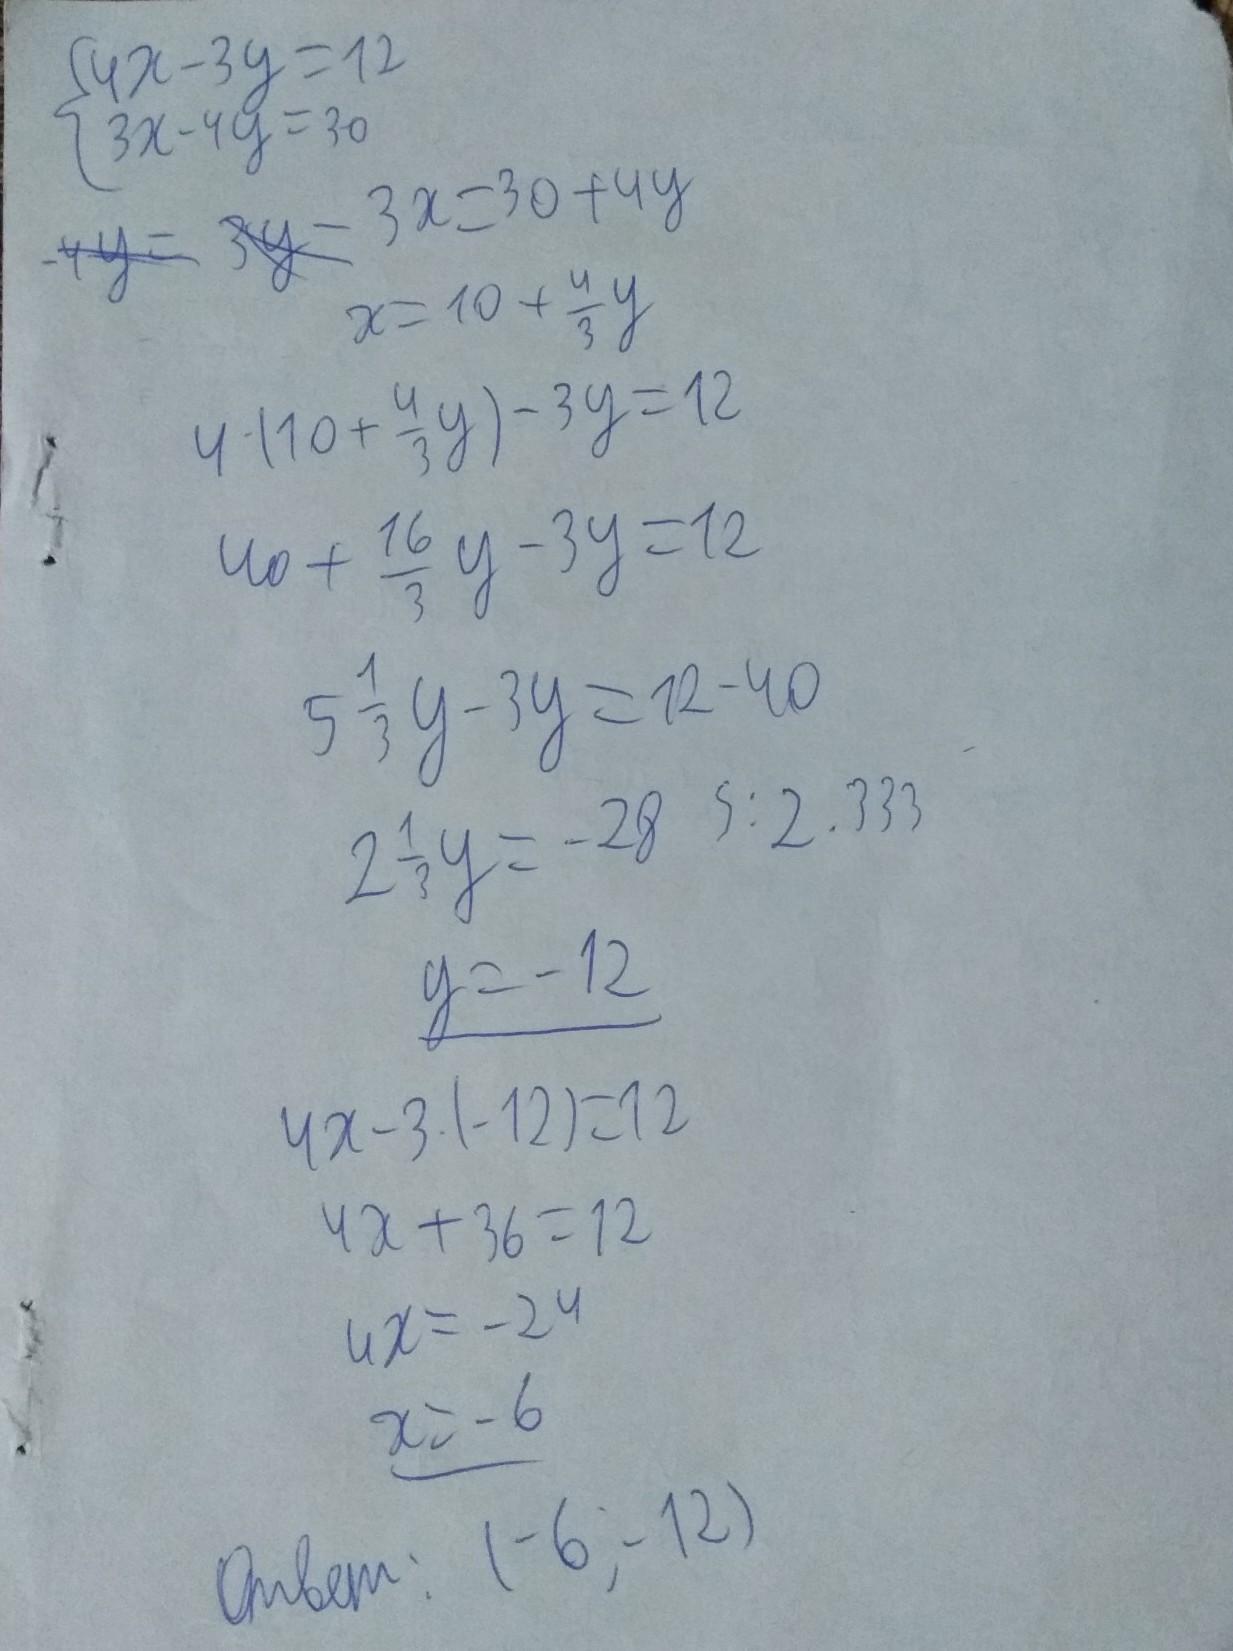 {4x-3y=12
3x-4y=30
-4y= 3y= 3x=30+4y
x=10+4/3y
4·(10+4/3y)-3y=12
40+16/3y-3y=12
5 1/3y-3y=12-40
2 1/3y=-28 :2.333
y=-12
4x-3·(-12)=12
4x+36=12
4x=-24
x=-6
Ответ: (-6;-12)